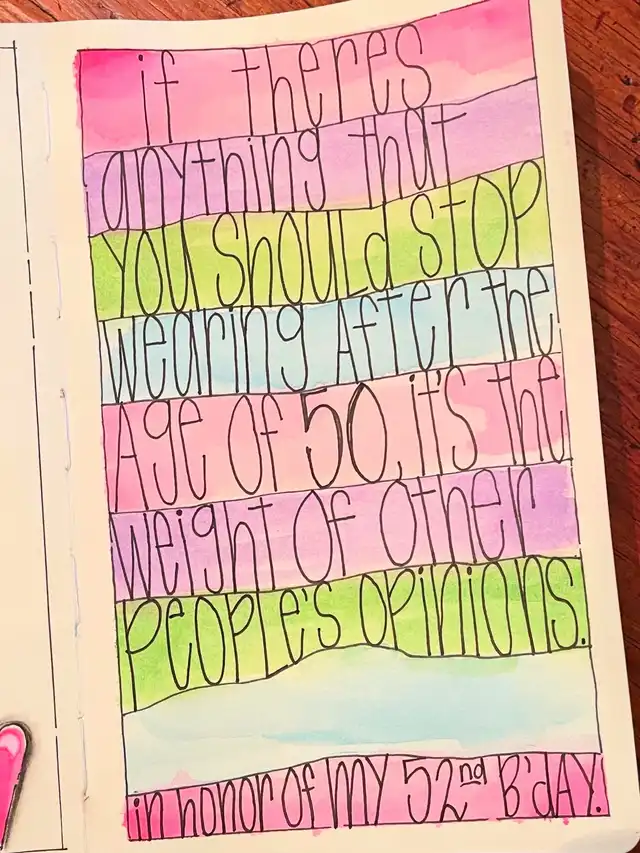 if theres
anything that
you should stop
wearing After the
Age Of 50, it's the
weight Of Other
People's opinions.
in honor Of My 52nd B'dAY.